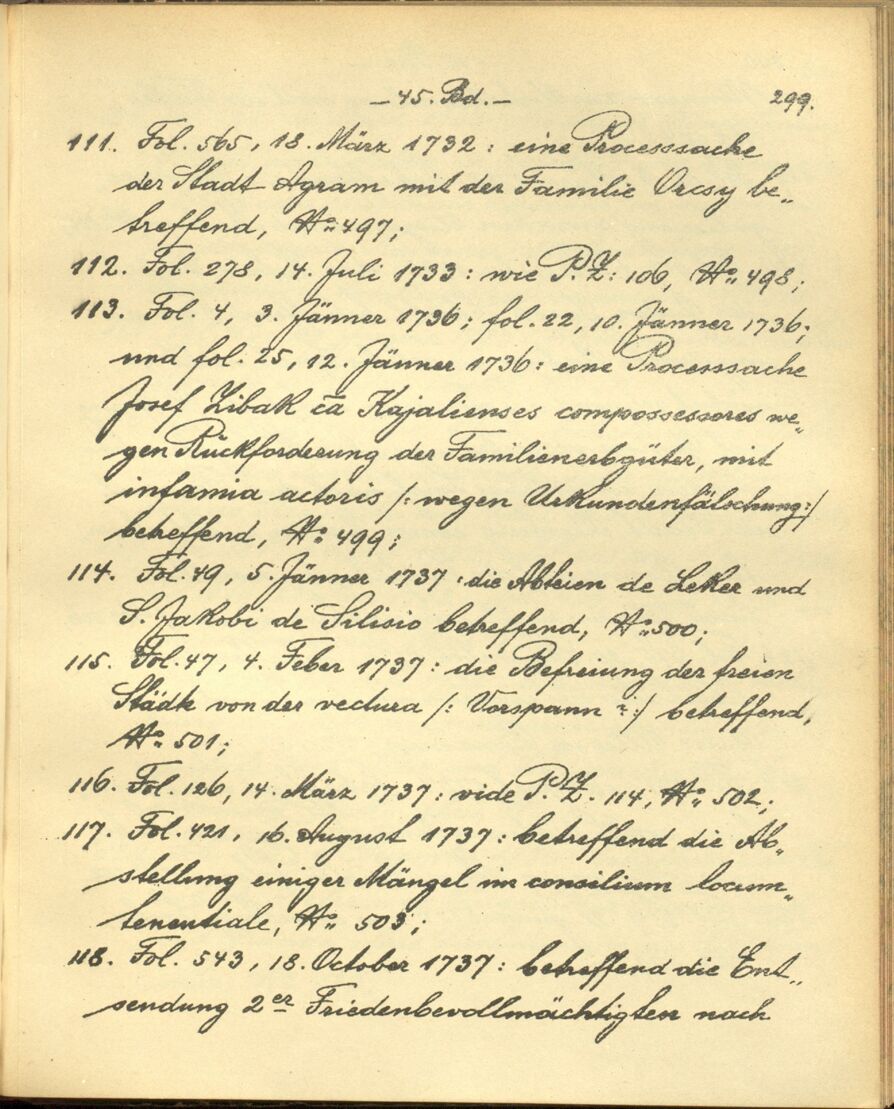 – 45. Bd. – 299.
111. Fol. 565, 18. März 1732: eine Processsache
der Stadt Agram mit der Familie Orcsy be„
treffend, No 497;
112. Fol. 278, 14. Juli 1733: wie P. Z: 106, No 498;
113. Fol. 4, 3. Jänner 1736; fol. 22, 10. Jänner 1736;
und fol. 25, 12. Jänner 1736: eine Processsache
Josef Zibak ca Kajalienses compossessores we„
gen Rückforderung der Familienerbgüter, mit
infamia actoris /: wegen Urkundenfälschung:/
betreffend, No 499;
114. Fol. 49, 5. Jänner 1737: die Abteien de Leker und
S. Jakobi de Silisio betreffend, No 500;
115. Fol. 47, 4. Feber 1737: die Befreiung der freien
Städte von der vectura /: Vorspann ?:/ betreffend,
No 501;
116. Fol. 126, 14. März 1737: vide P. Z. 114, No 502;
117. Fol. 421, 16. August 1737: betreffend die Ab„
stellung einiger Mängel im consilium locum„
tenentiale, No 503;
118. Fol. 543, 18. October 1737: betreffend die Ent„
sendung 2er Friedenbevollmächtigten nach